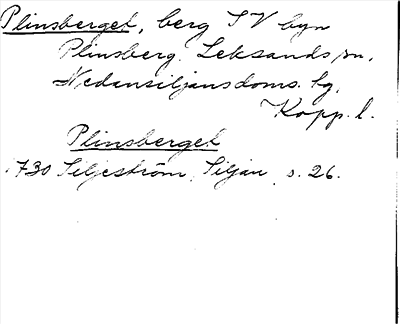 Plinsberget, berg SV byn
Plinsberg. Leksands sn,
Nedansiljans doms. lg,
Kopp. l.
Plinsberget
1730 Siljeström, Siljan, s. 26.